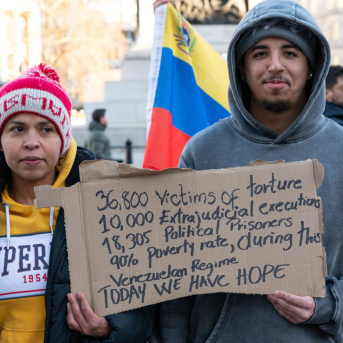 36,800 Victims of torture
10,000 Extrajudicial executions
18,305 Political Prisoners
90% Poverty rate, during this
Venezuelan Regime
TODAY WE HAVE HOPE
1954